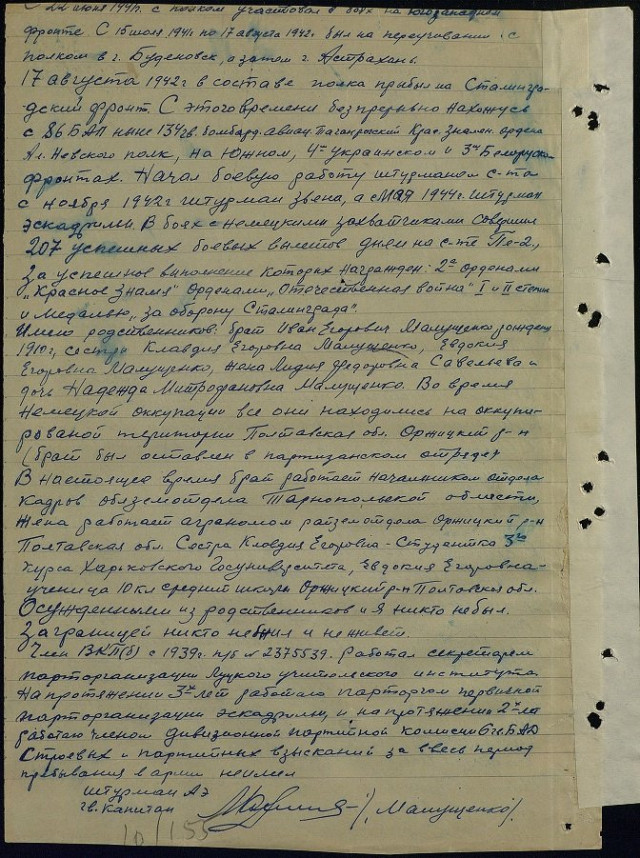 С 22 июня 1941г. с полком участвовал в боях на югозападном
фронте. С 15 июля 1941 по 17 августа 1942г был на переучивании с
полком в г. Буденовск, а затем г. Астрахань
17 августа 1942г в составе полка прибыл на Сталингра-
дский фронт. С этого времени безпрерывно нахожусь
с 86 БАП ныне 134 гв. бомбард. авиац. Таганрогский Крас. Знамен. ордена
Ал. Невского полк, на Южном, 4м украинском и 3м Белорусском
фронтах. Начал боевую работу штурманом с-та
с ноября 1942г штурман звена, а с мая 1944г. штурман
эскадрильи. В боях с немецкими захватчиками совершил
207 успешных боевых вылетов днем на с-те Пе-2,
За успешное выполнение которых награжден: 2я орденами
"Красное Знамя" орденами "Отечественная война" I и II степени
и медалью "За оборону Сталинграда".
Имею родственников: брат Иван Егорович Малущенко рождения
1910г, сестры Клавдия Егоровна Малущенко, Евдокия
Егоровна Малущенко, жена Лидия Федоровна Савельева и
дочь Надежда Митрофановна Малущенко. Во время
Немецкой оккупации все они находились на оккупи-
рованой територии Полтавская обл. Оржицкий р-н
(брат был оставлен в партизанском отряде)
В настоящее время брат работает начальником отдела
кадров облземотдела Тарнопольской области,
жена работает аграномом райземотдела Оржицкий р-н
Полтавская обл. Сестра Клавдия Егоровна - Студентка 3го
курса Харьковского Госуниверситета, Евдокия Егоровна -
ученица 10 кл средней школы Оржицкий р-н Полтавская обл.
Осужденными из родственников и я никто не был.
За границей никто небыл и не живет.
Член ВКП(б) с 1939г. п/б № 2375539. Работал секретарем
парторганизации Луцкого учительского института.
На протяжении 3х лет работаю парторгом первичной
парторганизации эскадрильи, и на протяжении 2х лет
работаю членом дивизионной партийной комиссии 6 гв. БАД
Строевых и партийных взысканий за ввесь период
пребывания в армии неимел
штурман АЭ
гв. Капитан /Малущенко/.
10/155